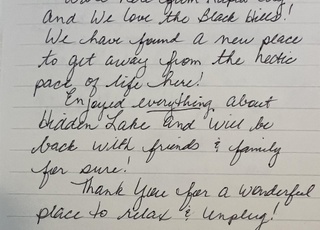 And We love the Black Hills!
We have found a new place
to get away from the hectic
pace of life here!
Enjoyed everything about
Hidden Lake and will be
back with friends & family
for sure!
Thank You for a wonderful
place to relax & unplug!